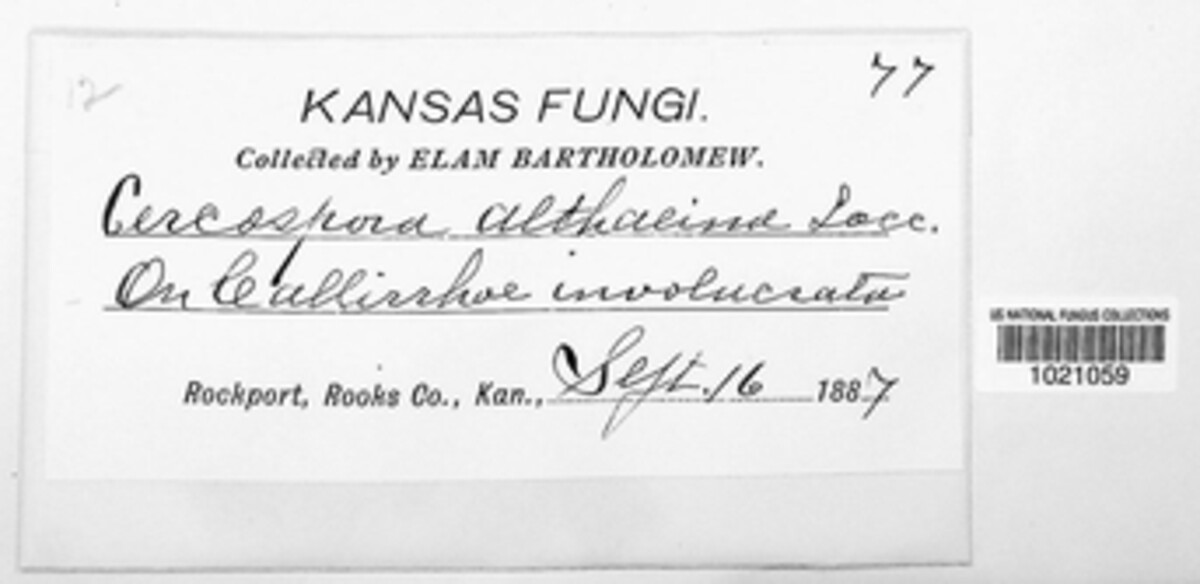 12
77
KANSAS FUNGI.
Collected by ELAM BARTHOLOMEW.
Cercospora althaeina Sacc.
On Callirrhoe involucrata
Rockport, Rooks Co., Kan., Sept. 16 1887
US NATIONAL FUNGUS COLLECTIONS
1021059